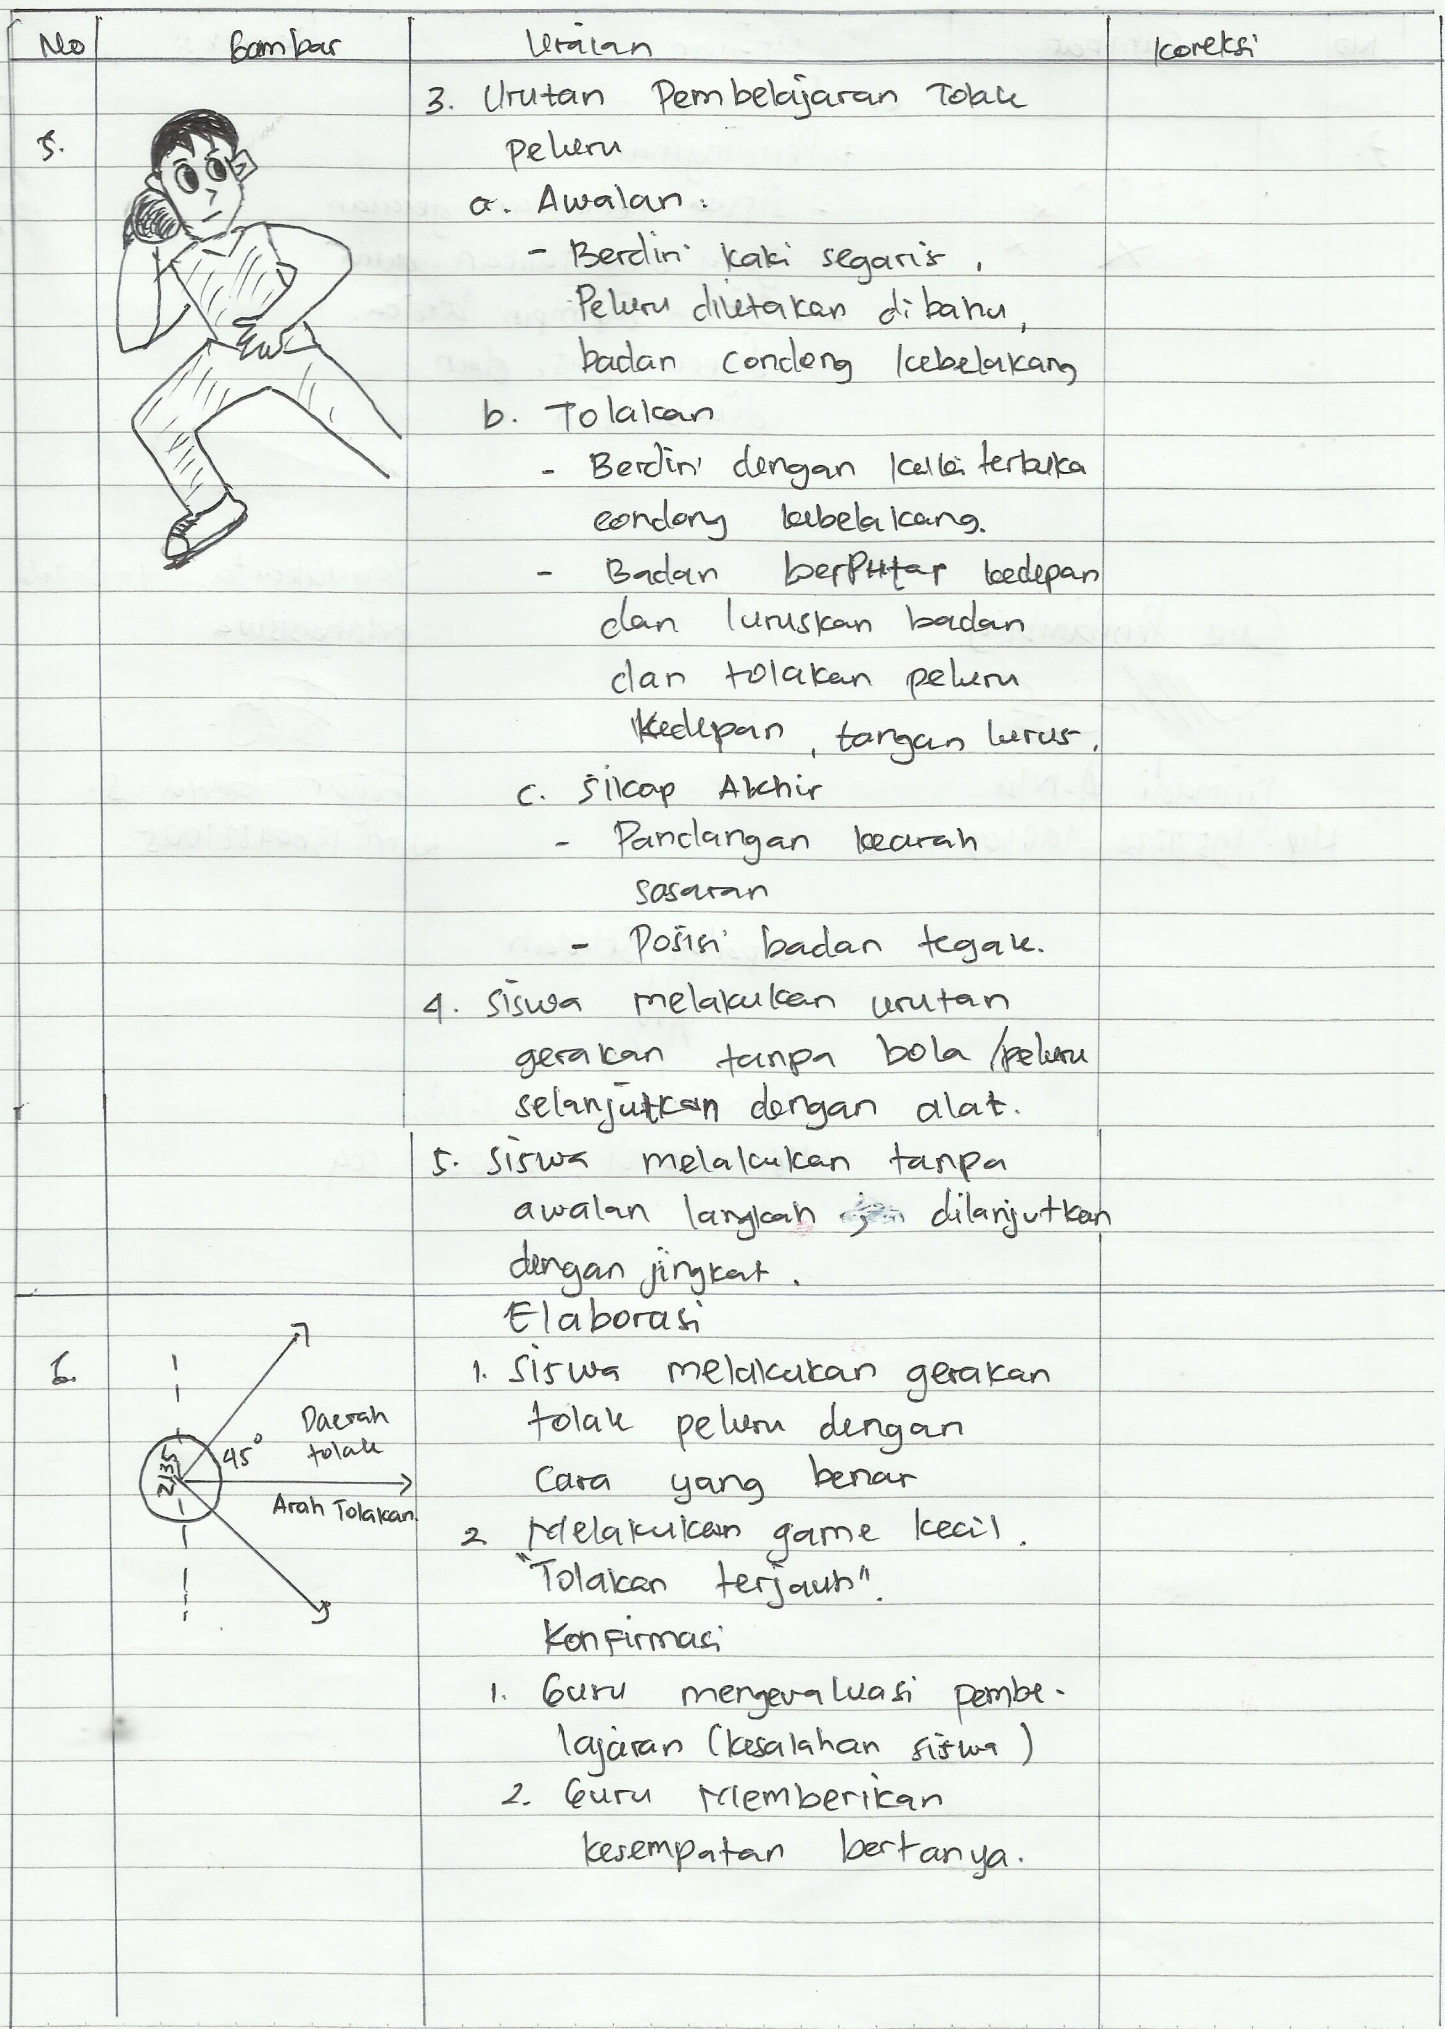 No Gambar Uraian Koreksi
3. Urutan Pembelajaran Tolak
5.
peluru
a. Awalan :
- Berdiri kaki segaris ,
Peluru diletakan di bahu,
badan condong kebelakang
b. Tolakan
- Berdiri dengan kaki terbuka
condong kebelakang.
- Badan berputar kedepan
dan luruskan badan
dan tolakan peluru
kedepan , tangan lurus.
c. Sikap Akhir
- Pandangan kearah
sasaran
- Posisi badan tegak.
4. Siswa melakukan urutan
gerakan tanpa bola /peluru
selanjutkan dengan alat.
5. Siswa melakukan tanpa
awalan langkah dilanjutkan
dengan jingkat .
Elaborasi
6.
1. Siswa melakukan gerakan
tolak peluru dengan
cara yang benar
Daerah
tolak
45°
2135
Arah Tolakan
2. Melakukan game kecil.
"Tolakan terjauh".
Konfirmasi
1. Guru mengevaluasi pembe-
lajaran (kesalahan siswa)
2. Guru Memberikan
kesempatan bertanya.